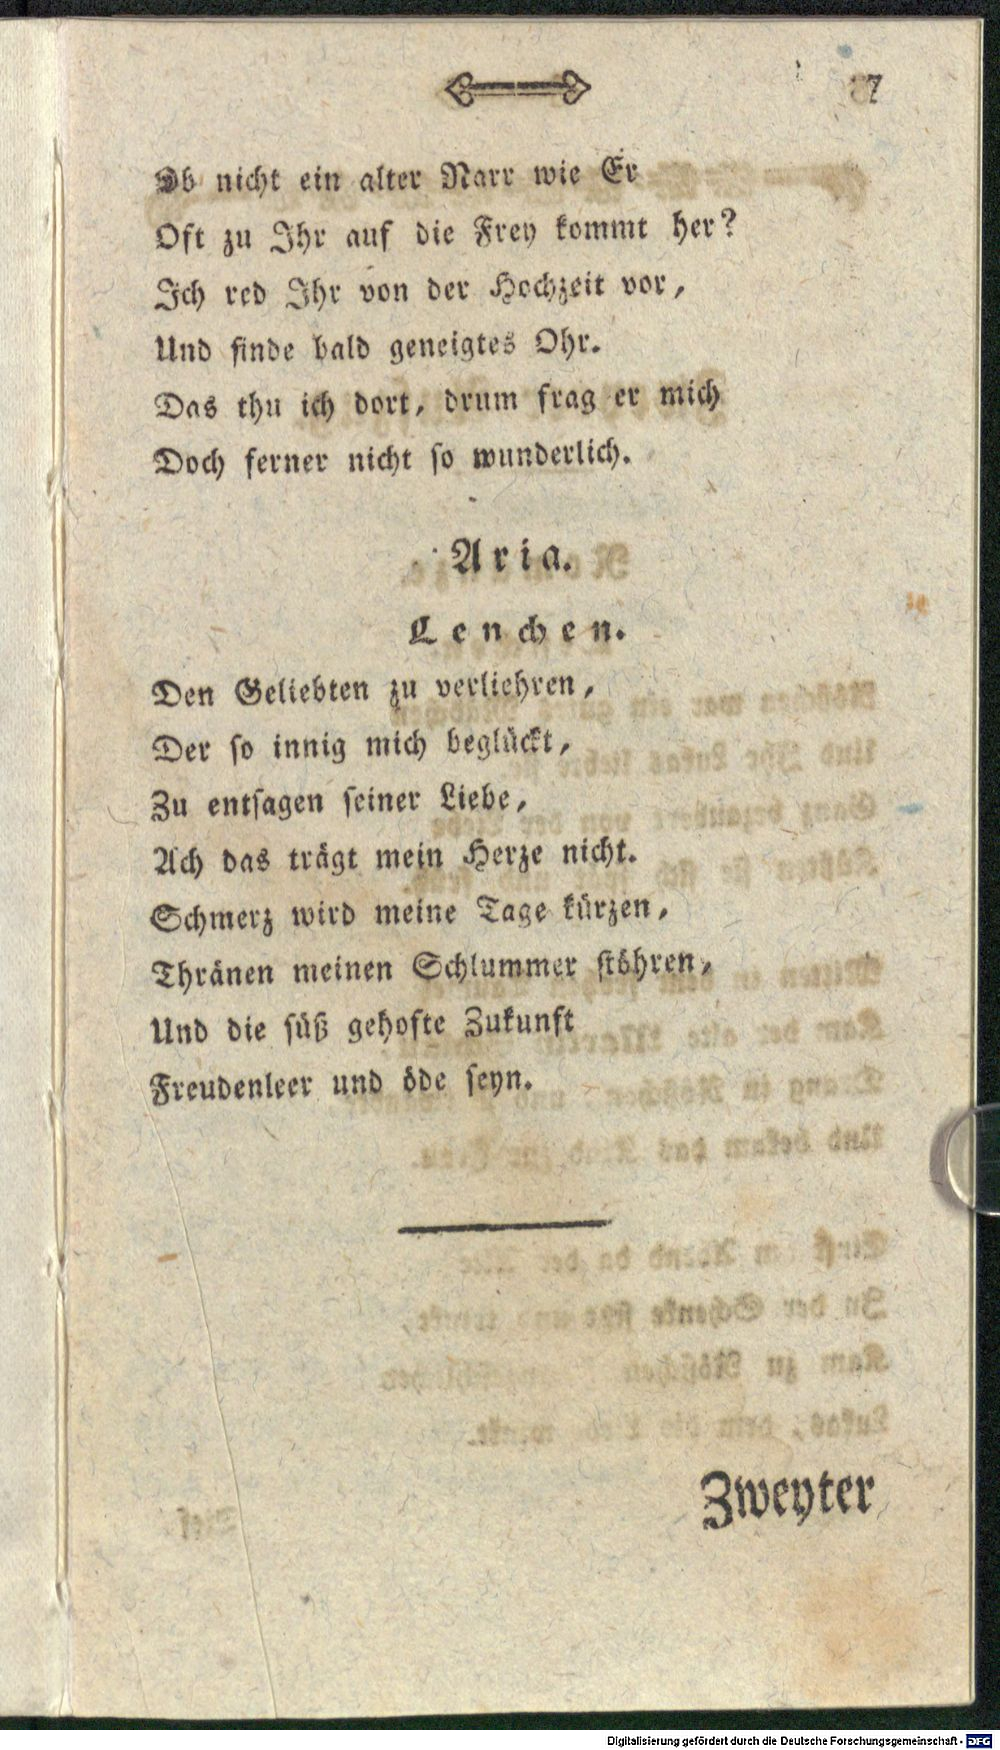 7
Ob nicht ein alter Narr wie Er
Oft zu Ihr auf die Frey kommt her?
Ich red Ihr von der Hochzeit vor,
Und finde bald geneigtes Ohr.
Das thu ich dort, drum frag er mich
Doch ferner nicht so wunderlich.
Aria.
Lenchen.
Den Geliebten zu verliehren,
Der so innig mich beglückt,
Zu entsagen seiner Liebe,
Ach das trägt mein Herze nicht.
Schmerz wird meine Tage kürzen,
Thränen meinen Schlummer stöhren,
Und die süß gehofte Zukunft
Freudenleer und öde seyn.
Zweyter
Digitalisierung gefördert durch die Deutsche Forschungsgemeinschaft - DFG